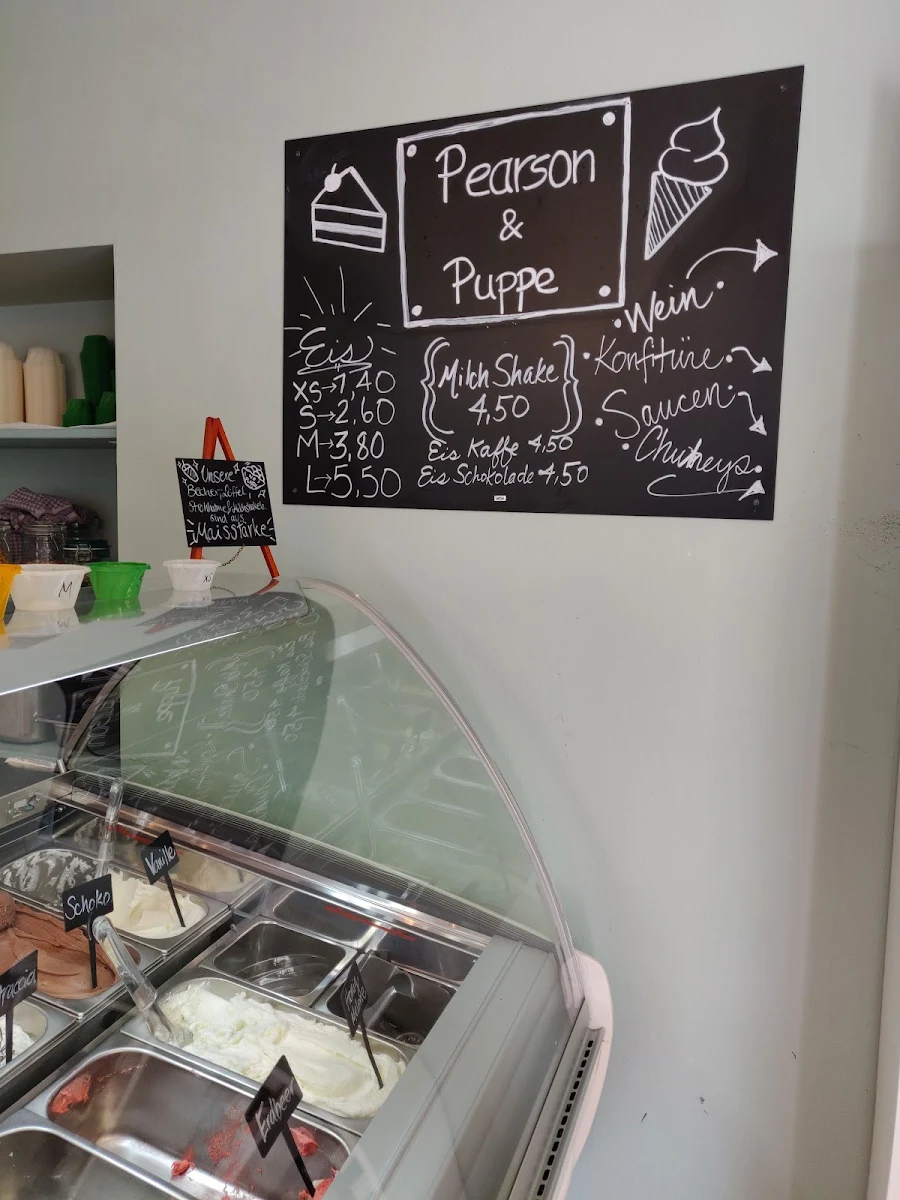 Pearson
&
Puppe
Eis
XS→1,40
S→2,60
M→3,80
L→5,50
{Milch Shake}
4,50
Eis Kaffe 4,50
Eis Schokolade 4,50
• Wein •
• Konfitüre •
• Saucen •
• Chutneys •
Unsere
Becher, Löffel,
sind aus
Maisstärke
M
XS
Vanille
Schoko
Erdbeer